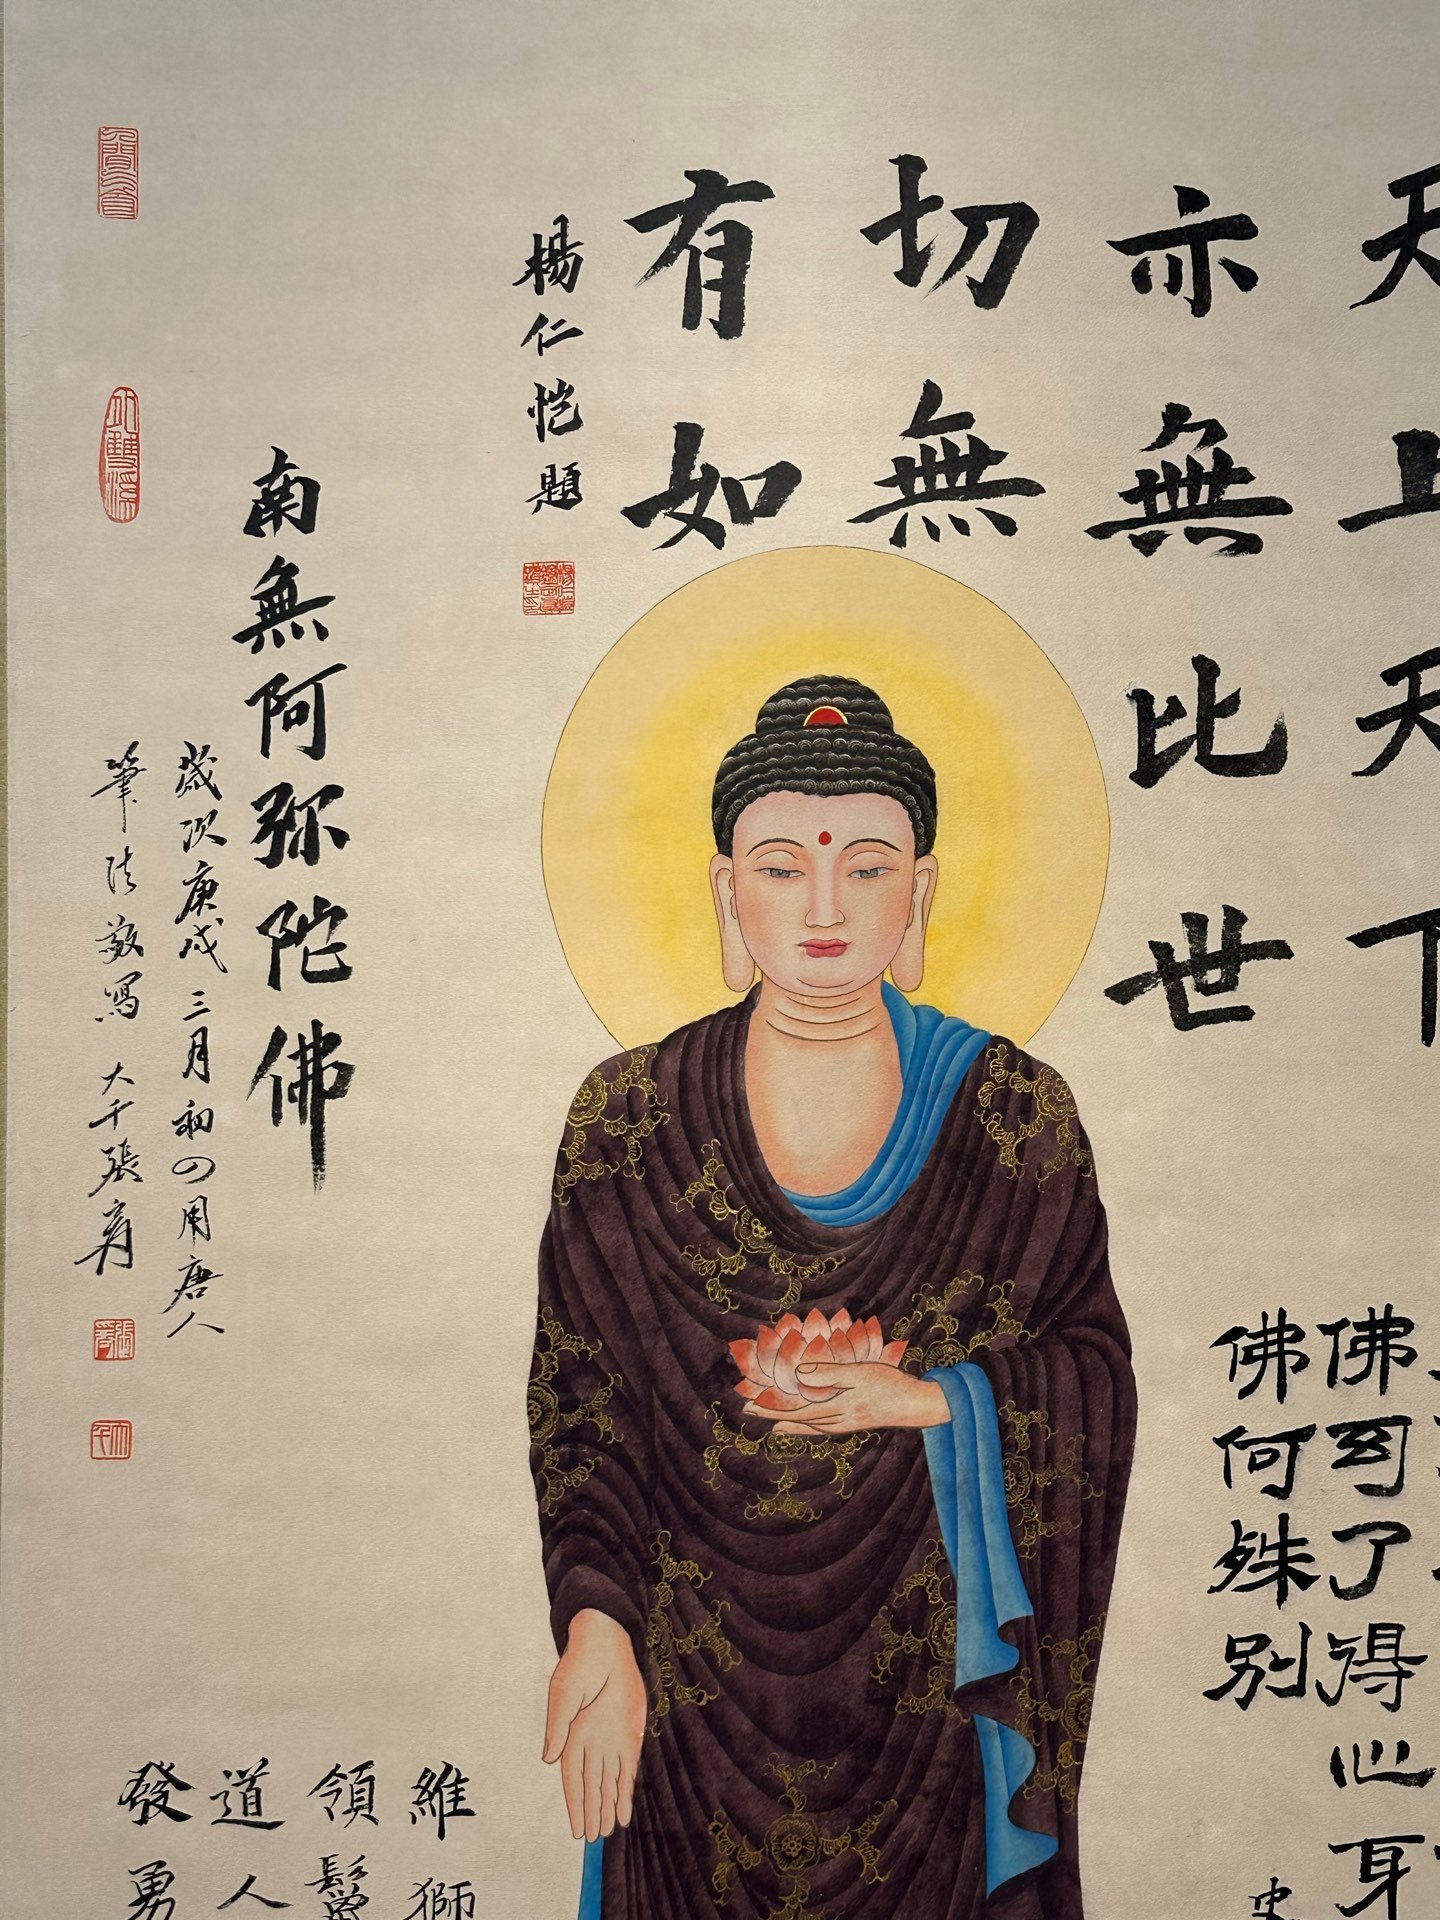 天上天下
亦無比世
切無
有如
楊仁愷題
南無阿弥陀佛
歲次庚戌三月初四用唐人
筆法敬寫 大千張爰
佛了得心身
佛何殊別
史
維獅
領鬚
道人
發勇